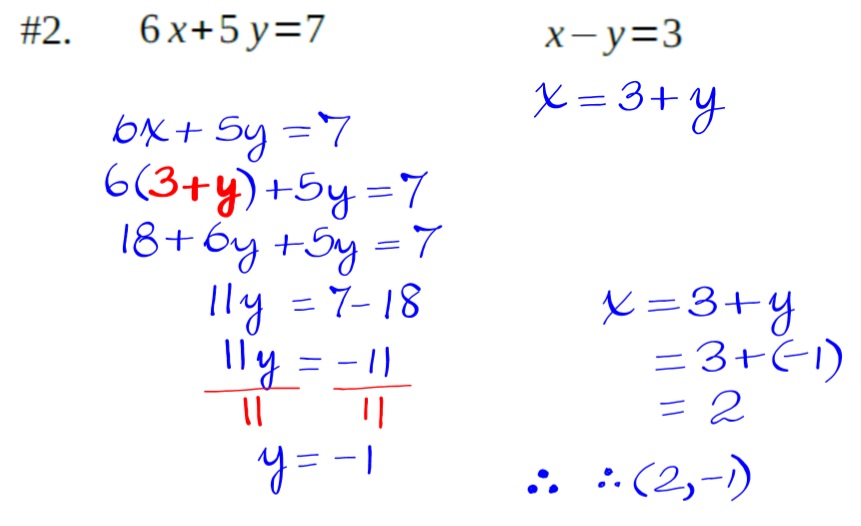 #2. 6x+5y=7 x−y=3
x = 3+y
6x + 5y = 7
6(3+y)+5y = 7
18+6y+5y = 7
11y = 7-18
11y = -11
11 11
y = -1
x = 3+y
= 3+(-1)
= 2
∴ ∴(2,-1)